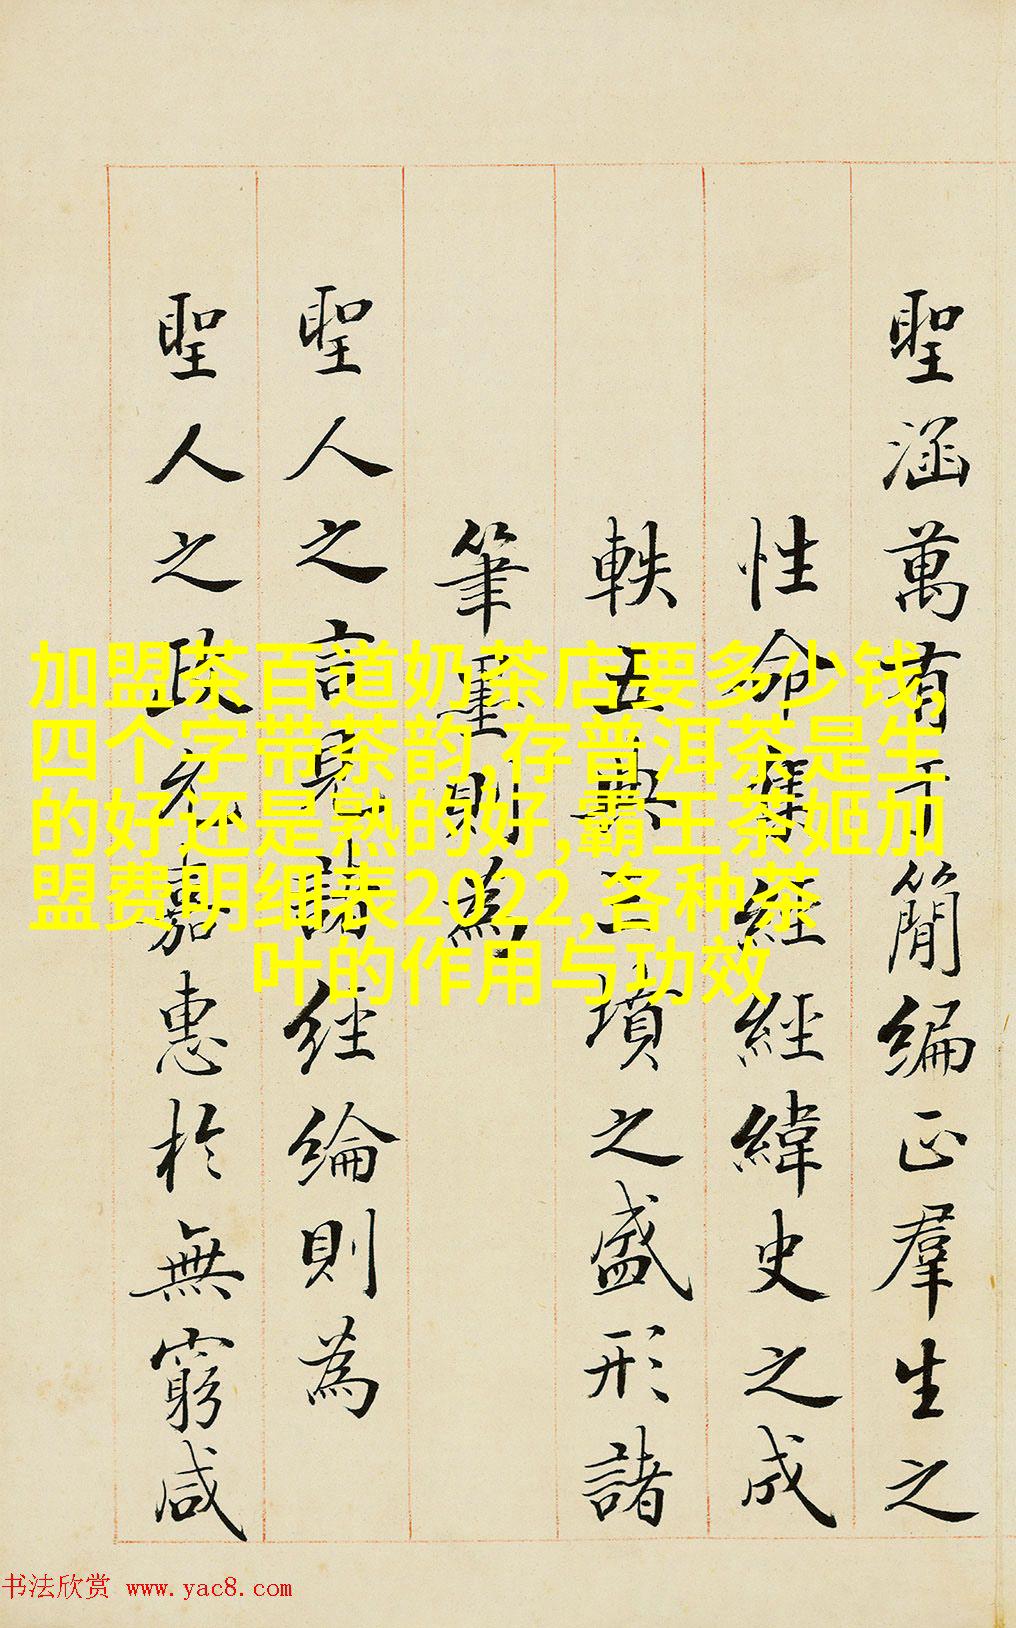 聖涵萬有于簡編正羣生之
性命經經緯史之成
軼五典三墳之盛形諸
筆墨則為
聖人之言見諸經綸則為
聖人之政嘉惠於無窮咸
加盟茶百道奶茶店要多少钱,
四个字带茶韵,存普洱茶是生
的好还是熟的好,霸王茶姬加
盟费明细表2022,各种茶
叶的作用与功效
书法欣赏 www.yac8.com